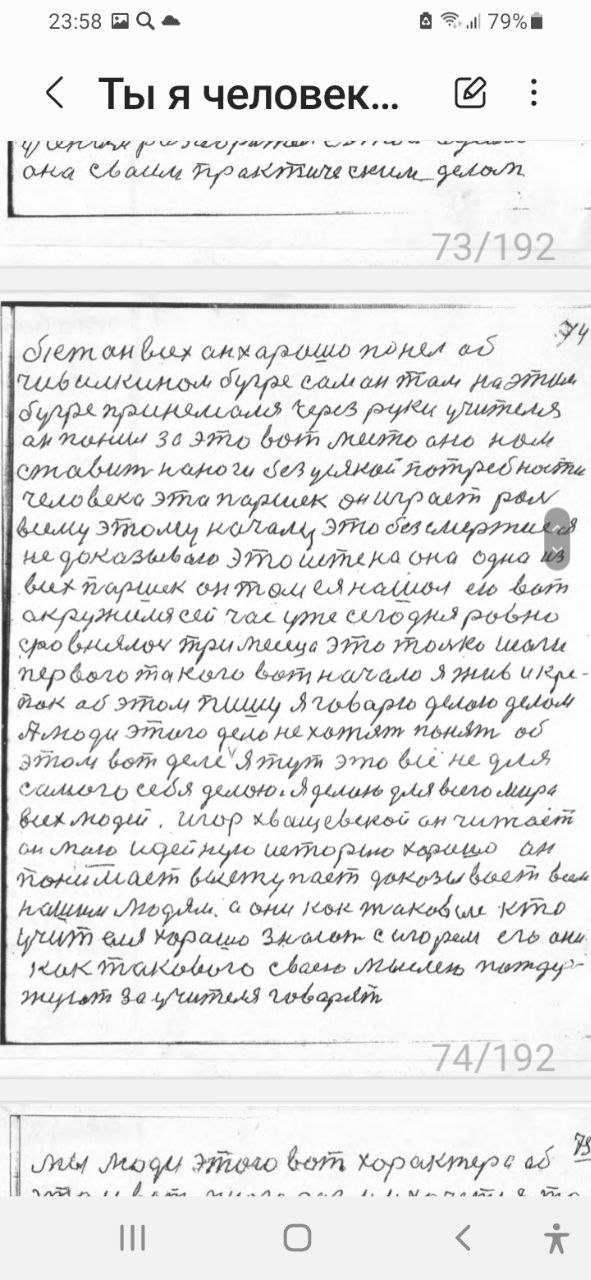 23:58 79%
Ты я человек...
она сваим практическим делом
73/192
74
вих анхарашо понел аб
чивилкином бугре сам ан там на этим
бугре принемался через руки учителя
ан понил за это вот место ано нам
ставит наноги без усякой потребности
человека эта паршек он играет рол
всему этому началу это безсмертие я
не доказываю это истена она одна из
вих паршек он том ся нашол его вот
акружился сей час уже сегодня ровно
три месеца это толко шаги
первого такого вот начало я жив и кре-
пок аб этом пишу я говарю делаю делом
А люди этого дело не хотят понят об
этом вот деле я тут это всё не для
самого себя делаю. я делаю для всего мира
всех людей. игор хващевской ан читает
ан маю идейную историю хорошо ан
понимает выступает доказывает всем
нашим людям. а они как таковые кто
учителя хорошо знают с игорем его они
как такового сваею мыслею поддер-
жуют за учителя говарят
74/192
75
мы люди этого вот характера аб